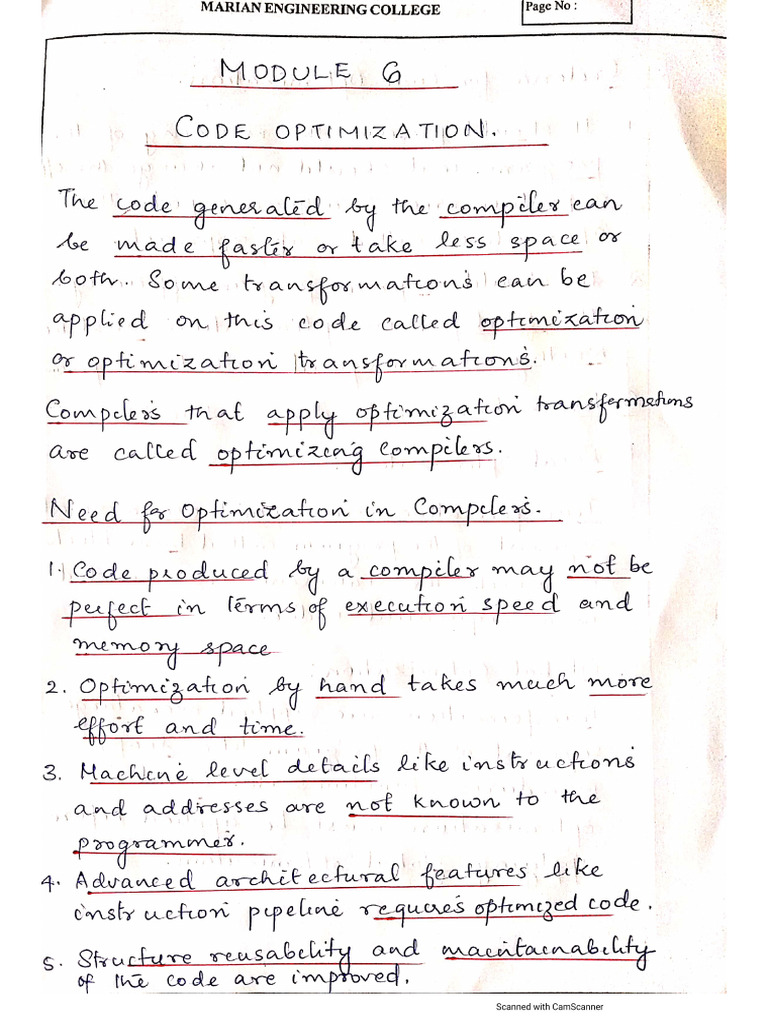 MARIAN ENGINEERING COLLEGE
Page No :
MODULE 6
CODE OPTIMIZATION.
The code generated by the compiler can
be made faster or take less space or
both. Some transformations can be
applied on this code called optimization
or optimization transformations.
Compilers that apply optimization transformations
are called optimizing compilers.
Need for Optimization in Compilers.
1. Code produced by a compiler may not be
perfect in terms of execution speed and
memory space
2. Optimization by hand takes much more
effort and time.
3. Machine level details like instructions
and addresses are not known to the
programmer.
4. Advanced architectural features like
instruction pipeline requires optimized code.
5. Structure reusability and maintainability
of the code are improved.
Scanned with CamScanner